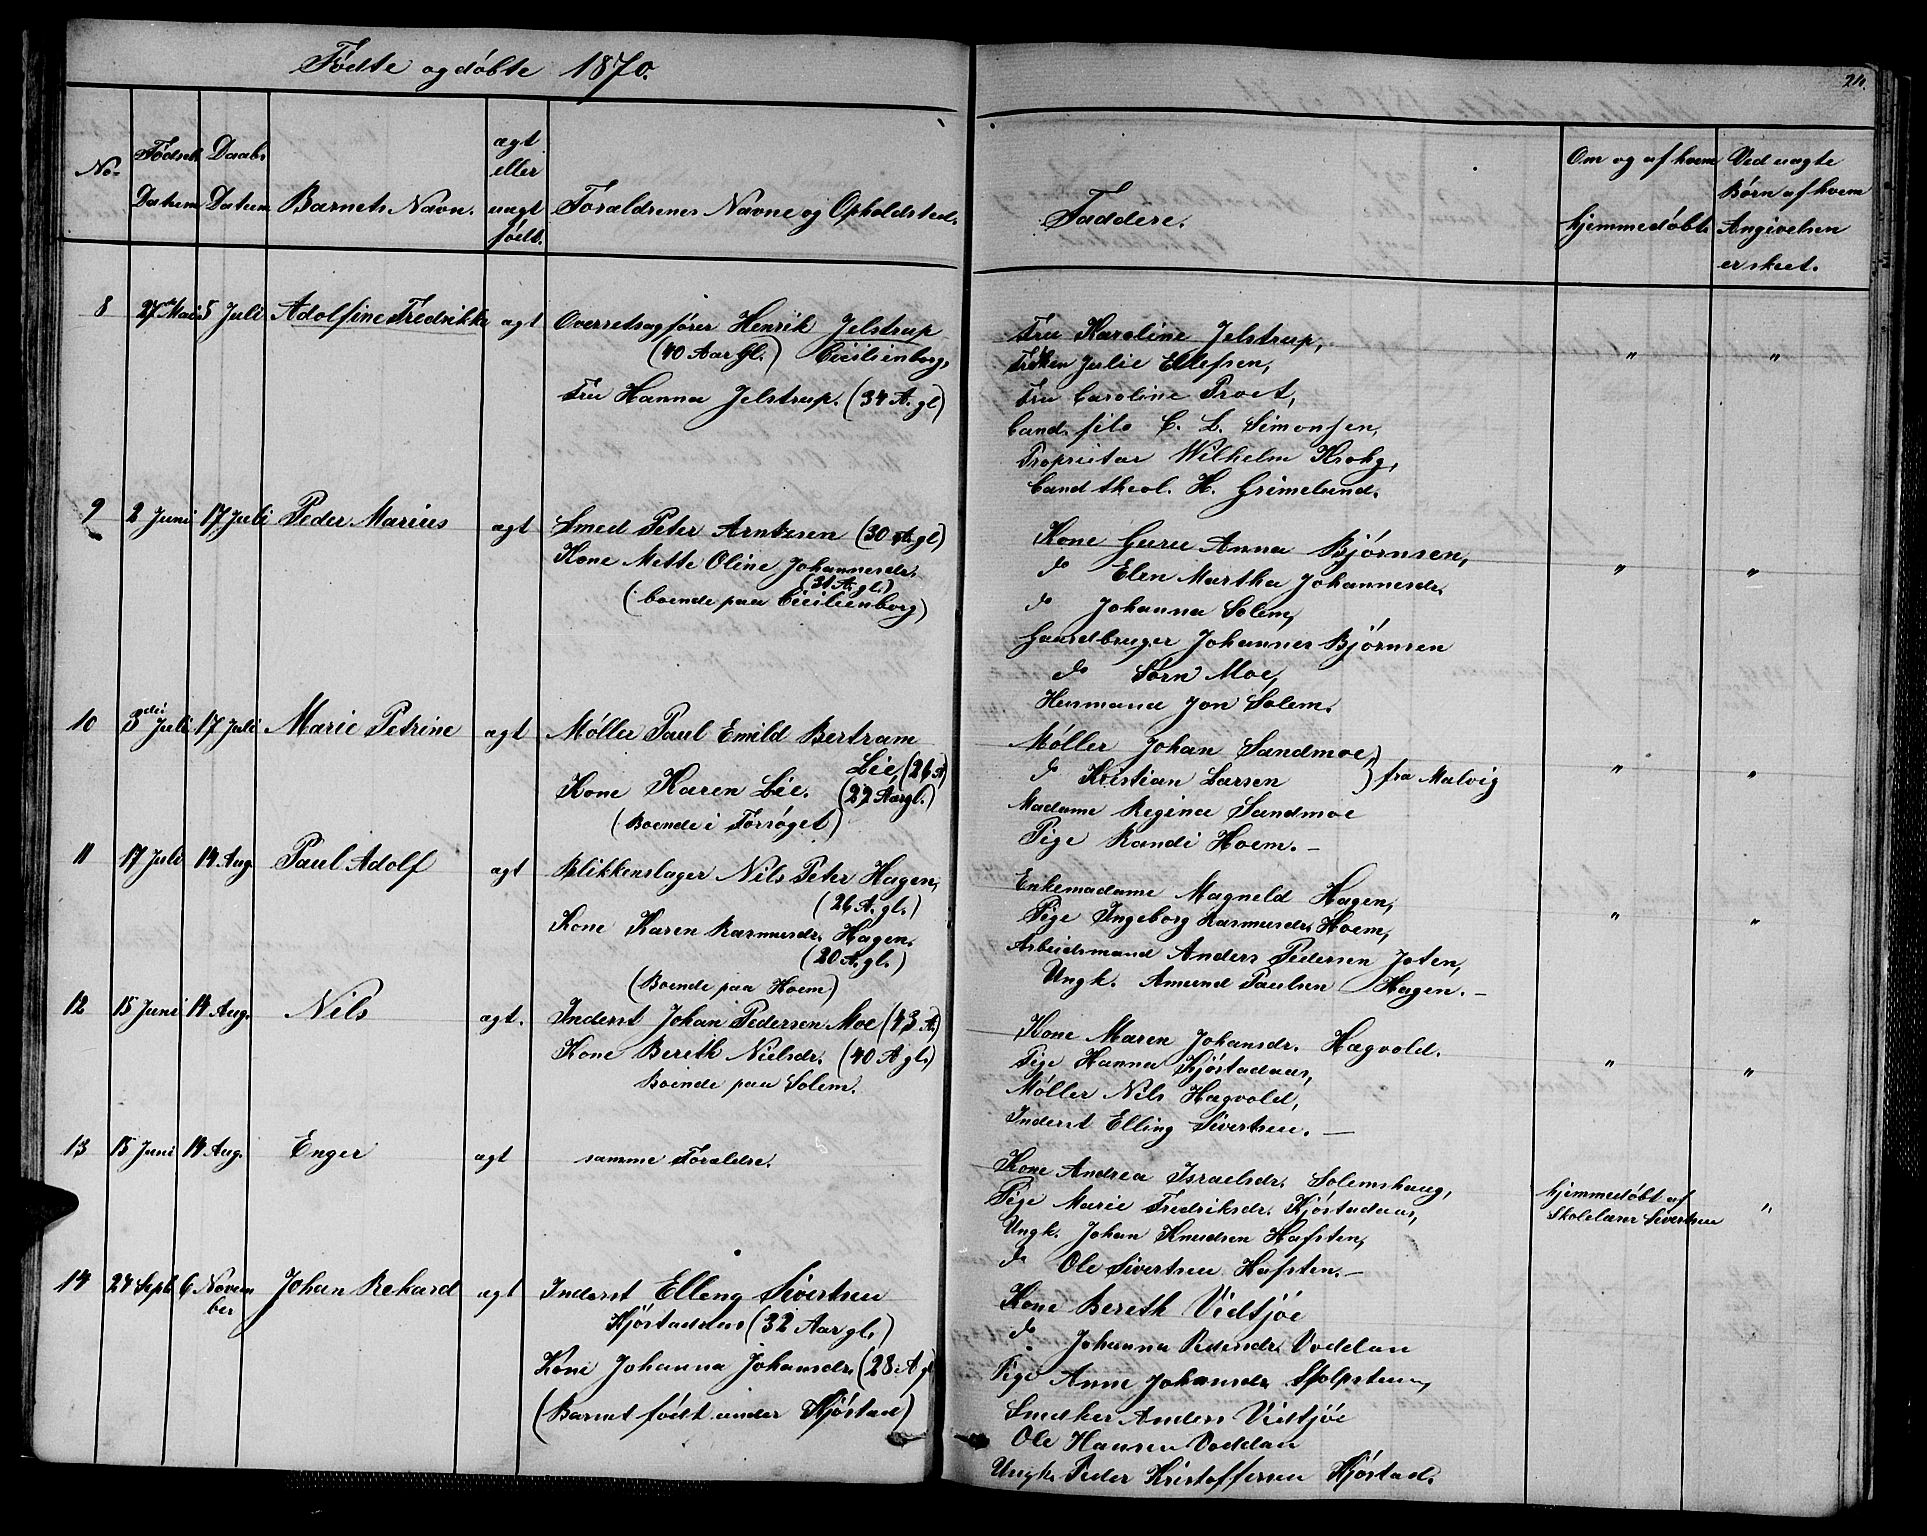 Fødte og døbte 1870.
No.
Fødsels Datum
Daabs Datum
Barnets Navn.
ægt eller uægt født.
Forældrenes Navne og Opholdsted.
8 27 Mai 5 Juli Adolfine Fredrikke ægt Overretsagfører Henrik Jelstrup
(40 Aar Gl.) Cicilienborg,
Fru Hanna Jelstrup. (34 A. gl)
9 2 Juni 17 Juli Peder Marius ægt Smed Peter Arntzen (30 A gl)
Kone Mette Oline Johannesdr.
(31 A. gl.)
(boende paa Cicilienborg)
10 3die Juli 17 Juli Marie Petrine ægt Møller Paul Emild Bertram
Lie, (26 A
Kone Karen Lie. (27 Aar gl.)
(Boende i Forsøget)
11 17 Juli 14 Aug. Paul Adolf ægt Blikkenslager Nils Peter Hagen,
(26 A. gl.)
Kone Karen Rasmusdr. Hagen.
(20 A. gl.)
(Boende paa Hoem)
12 15 Juni 14 Aug. Nils ægt. Inderst Johan Pedersen Moe (43 A.)
Kone Bereth Nielsdr. (40 A gl.)
Boende paa Solem.
13 15 Juni 14 Aug. Enger ægt samme Forældre.
14 24 Septb. 6 Novem
ber
Johan Rekard ægt Inderst Elleng Sivertsen
Kjøstadaas (32 Aar gl.)
Kone Johanna Johansdr. (28 A gl
(Barnet født under Kjøstad)
211.
Faddere.
Om og af hvem
hjemmedøbt.
Ved uægte
Børn af hvem
Angivelsen
er skeet.
Fru Karoline Jelstrup,
Frøken Julie Ellefsen,
Fru Caroline Troet,
Cand. filo C. L. Simonsen,
Proprietær Wilhelm Krohg,
Cand theol. H. Grimelund.
" "
Kone Guru Anna Bjørnsen,
do Elen Martha Johannesdr.
do Johanna Solem,
Gaardbruger Johannes Bjørnsen
do Sørn Moe,
Husmand Jon Solem.
" "
Møller Johan Sandmoe,
do Kristian Larsen ) fra Malvig
Madame Regina Sandmoe
Pige Randi Hoem. –
" "
Enkemadame Magneld Hagen,
Pige Ingeborg Rasmusdr. Hoem,
Arbeidsmand Anders Pedersen Joten,
Ungk. Amund Paulsen Hagen. –
" "
Kone Maren Johansdr. Hægvold.
Pige Hanna Kjøstadaas,
Møller Nils Hægvold,
Inderst Elling Sivertsen. –
" "
Kone Andrea Israelsdr. Solemshaug,
Pige Marie Fredriksdr. Kjøstadaas,
Ungk. Johan Knudsen Hafsten,
do Ole Sivertsen Hafsten. –
hjemmedøbt af
Skolelærer Sivertsen
"
Kone Bereth Vidtjøe
do Johanna Voddan
Pige Anne Johansdr.
Snedker Anders Vidtjøe
Ole Hansen Voddan
Ungk. Peder Kristoffersen Kjøstad.